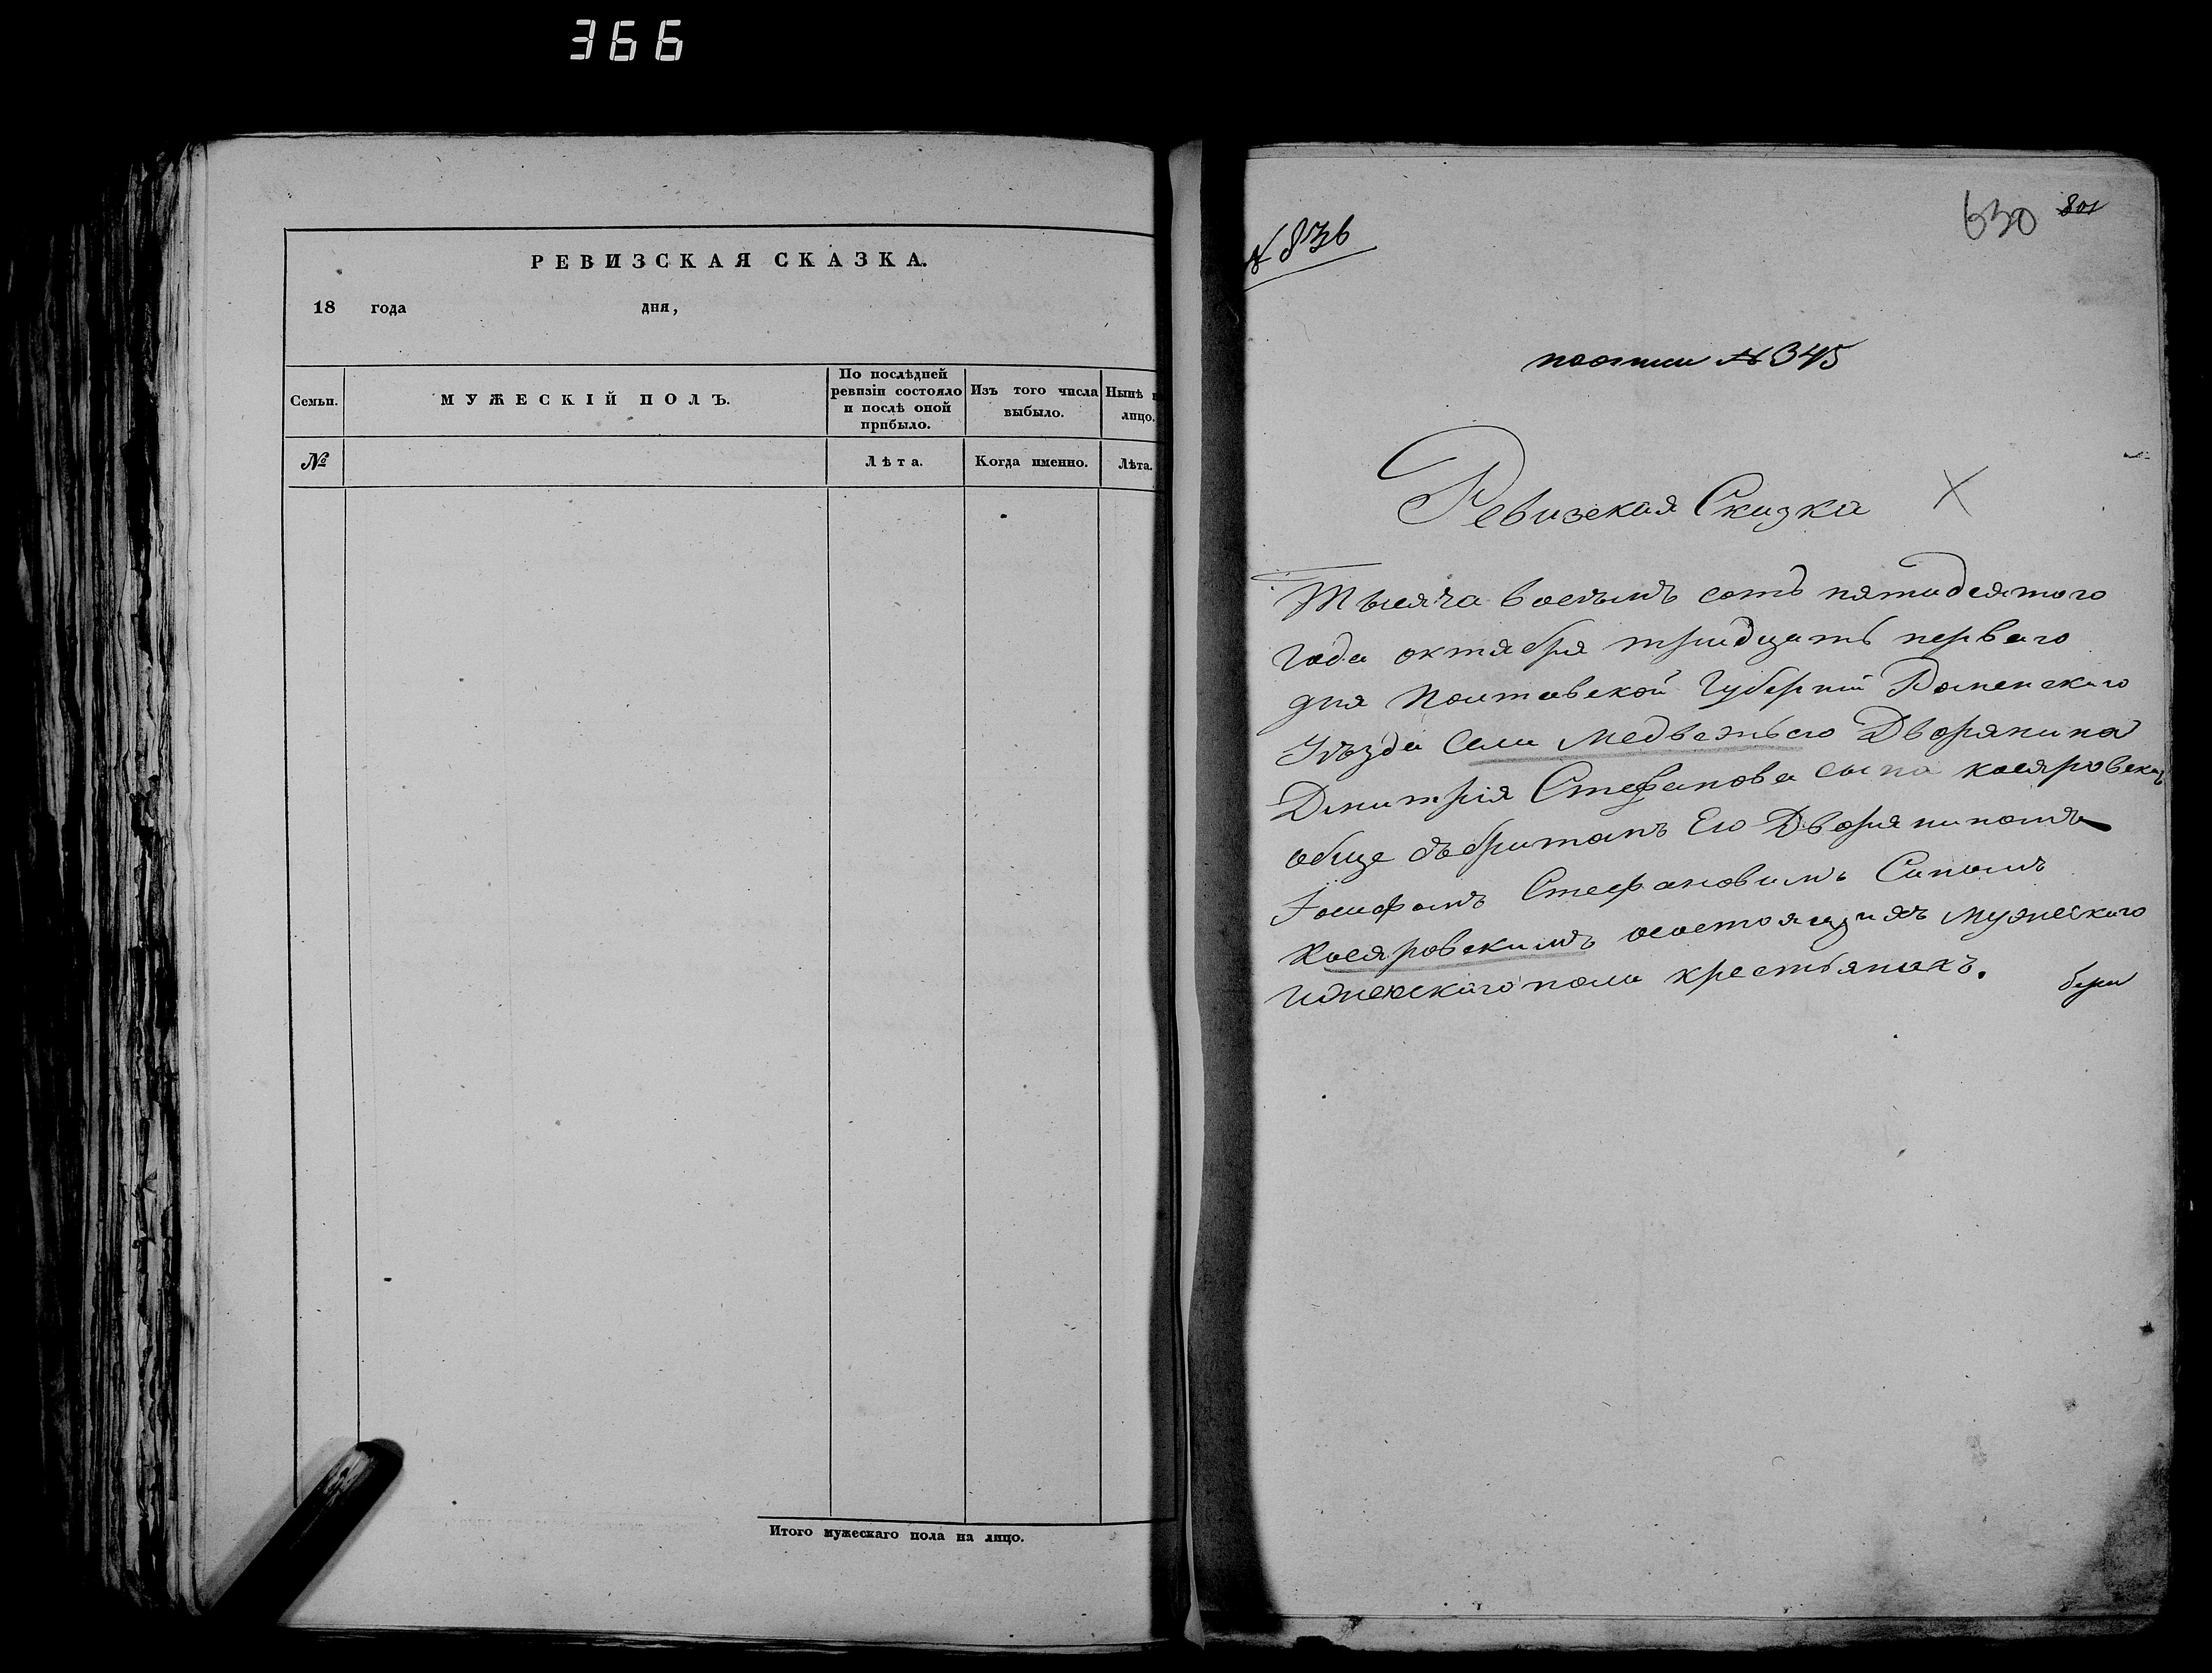 366
РЕВИЗСКАЯ СКАЗКА.
18 года дня,
Семьи.
МУЖЕСКІЙ ПОЛЪ.
По послѣдней
ревизіи состояло
и послѣ оной
прибыло.
Изъ того числа
выбыло.
Нынѣ н
лицо.
№
Лѣта.
Когда именно.
Лѣта.
Итого мужескаго пола на лицо.
№ 836
630 801
№ 345
Ревизская Сказка
Тысяча восемъ сотъ пятидесятого
года октября тридцать первого
дня Полтавской Губерніи Роменского
Уѣзда Села Медвежьего Дворянина
Дмитрія Стефанова сына косяровска
обще съ братомъ Его Дворяниномъ
Іосифомъ Стефановимъ Синомъ
Косяровскимъ состоящихъ мужеского
Иженского пола крестьянахъ.